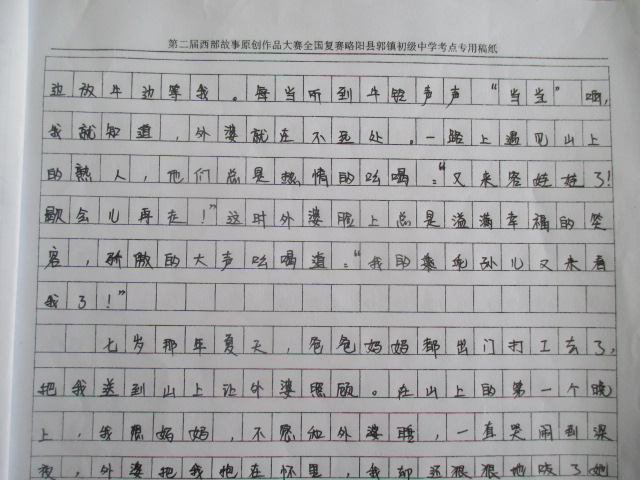 第二届西部故事原创作品大赛全国复赛略阳县郭镇初级中学考点专用稿纸
边放牛边等我。每当听到牛铃声声“当当”响，
我就知道，外婆就在不远处。一路上遇见山上
的熟人，他们总是热情的吆喝：“又来客娃娃了！
歇会儿再走！”这时外婆脸上总是溢满幸福的笑
容，骄傲的大声吆喝道：“我的乖乖孙儿又来看
我了！”
七岁那年夏天，爸爸妈妈都出门打工去了，
把我送到山上让外婆照顾。在山上的第一个晚
上，我想妈妈，不愿和外婆睡，一直哭闹到深
夜，外婆把我抱在怀里，我却还狠狠地咬了她